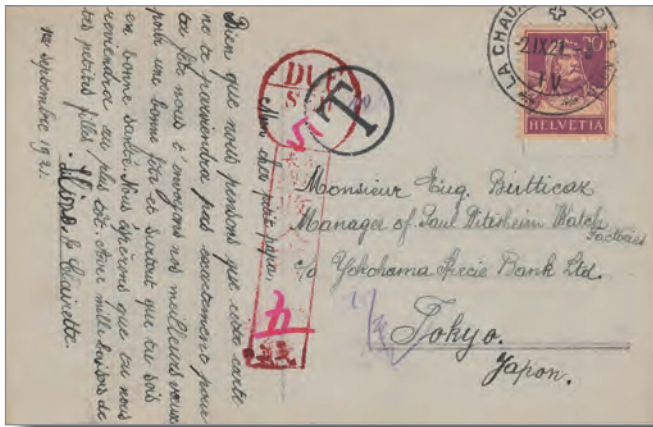 Mon cher petit papa,
Bien que nous pensons que cette carte
ne te parviendra pas exactement pour
ta fête nous t'envoyons nos meilleurs vœux
pour une bonne fête et surtout que tu sois
en bonne santé. Nous espérons que tu nous
reviendra au plus tôt. Avec mille baisers de
tes petites filles
& Clairette.
1er septembre 1921.
DUE
T
5
LA CHAUX
2.IX.21
HELVETIA
Monsieur Eug. Birtticaz
Manager of Paul Ditisheim Watch
Factories
c/o Yokohama Specie Bank Ltd.
Tokyo.
Japon.